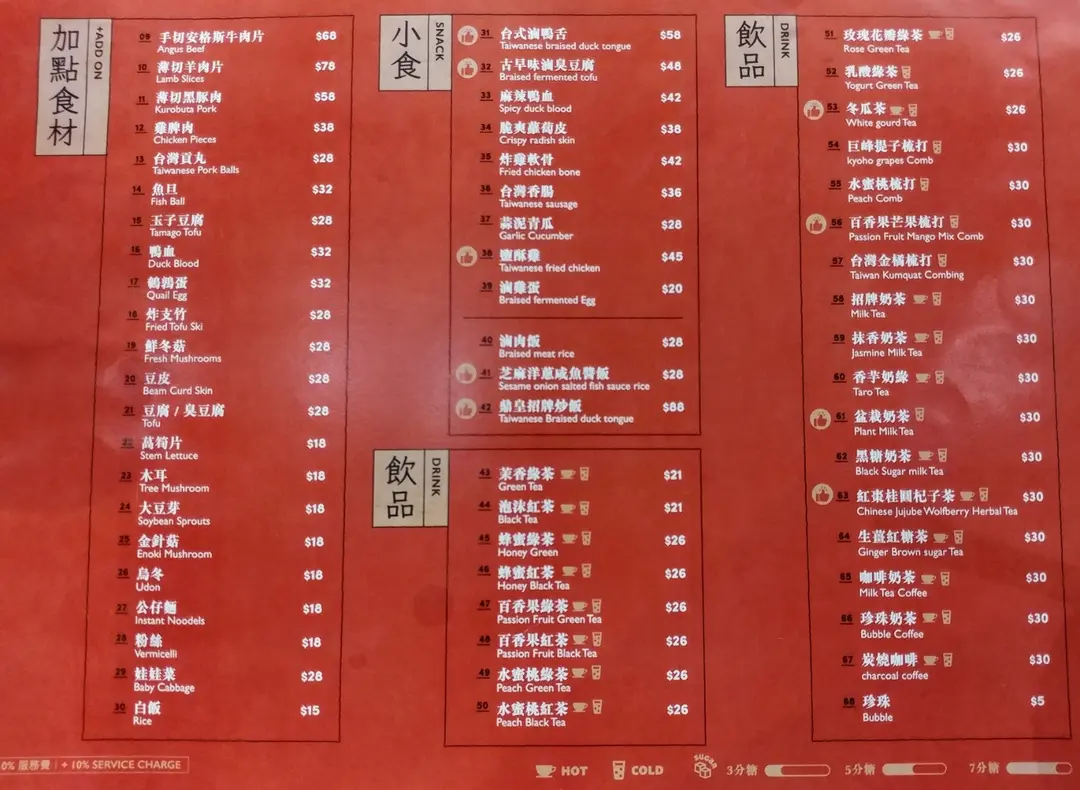 加點食材
+ADD ON
09 手切安格斯牛肉片 $68
Angus Beef
10 薄切羊肉片 $78
Lamb Slices
11 薄切黑豚肉 $58
Kurobuta Pork
12 雞脾肉 $38
Chicken Pieces
13 台灣貢丸 $28
Taiwanese Pork Balls
14 魚旦 $32
Fish Ball
15 玉子豆腐 $28
Tamago Tofu
16 鴨血 $32
Duck Blood
17 鵪鶉蛋 $32
Quail Egg
18 炸支竹 $28
Fried Tofu Ski
19 鮮冬菇 $28
Fresh Mushrooms
20 豆皮 $28
Beam Curd Skin
21 豆腐 / 臭豆腐 $28
Tofu
22 萵筍片 $18
Stem Lettuce
23 木耳 $18
Tree Mushroom
24 大豆芽 $18
Soybean Sprouts
25 金針菇 $18
Enoki Mushroom
26 烏冬 $18
Udon
27 公仔麵 $18
Instant Noodels
28 粉絲 $18
Vermicelli
29 娃娃菜 $28
Baby Cabbage
30 白飯 $15
Rice
0% 服務費 | + 10% SERVICE CHARGE
小食
SNACK
31 台式滷鴨舌 $58
Taiwanese braised duck tongue
32 古早味滷臭豆腐 $48
Braised fermented tofu
33 麻辣鴨血 $42
Spicy duck blood
34 脆爽蘿蔔皮 $38
Crispy radish skin
35 炸雞軟骨 $42
Fried chicken bone
36 台灣香腸 $36
Taiwanese sausage
37 蒜泥青瓜 $28
Garlic Cucumber
38 鹽酥雞 $45
Taiwanese fried chicken
39 滷雞蛋 $20
Braised fermented Egg
40 滷肉飯 $28
Braised meat rice
41 芝麻洋蔥咸魚醬飯 $28
Sesame onion salted fish sauce rice
42 鼎皇招牌炒飯 $88
Taiwanese Braised duck tongue
飲品
DRINK
43 茉香綠茶 $21
Green Tea
44 泡沫紅茶 $21
Black Tea
45 蜂蜜綠茶 $26
Honey Green
46 蜂蜜紅茶 $26
Honey Black Tea
47 百香果綠茶 $26
Passion Fruit Green Tea
48 百香果紅茶 $26
Passion Fruit Black Tea
49 水蜜桃綠茶 $26
Peach Green Tea
50 水蜜桃紅茶 $26
Peach Black Tea
飲品
DRINK
51 玫瑰花瓣綠茶 $26
Rose Green Tea
52 乳酸綠茶 $26
Yogurt Green Tea
53 冬瓜茶 $26
White gourd Tea
54 巨峰提子梳打 $30
kyoho grapes Comb
55 水蜜桃梳打 $30
Peach Comb
56 百香果芒果梳打 $30
Passion Fruit Mango Mix Comb
57 台灣金橘梳打 $30
Taiwan Kumquat Combing
58 招牌奶茶 $30
Milk Tea
59 抹香奶茶 $30
Jasmine Milk Tea
60 香芋奶綠 $30
Taro Tea
61 盆栽奶茶 $30
Plant Milk Tea
62 黑糖奶茶 $30
Black Sugar milk Tea
63 紅棗桂圓杞子茶 $30
Chinese Jujube Wolfberry Herbal Tea
64 生薑紅糖茶 $30
Ginger Brown sugar Tea
65 咖啡奶茶 $30
Milk Tea Coffee
66 珍珠奶茶 $30
Bubble Coffee
67 炭燒咖啡 $30
charcoal coffee
68 珍珠 $5
Bubble
HOT COLD SUGAR 3分糖 5分糖 7分糖